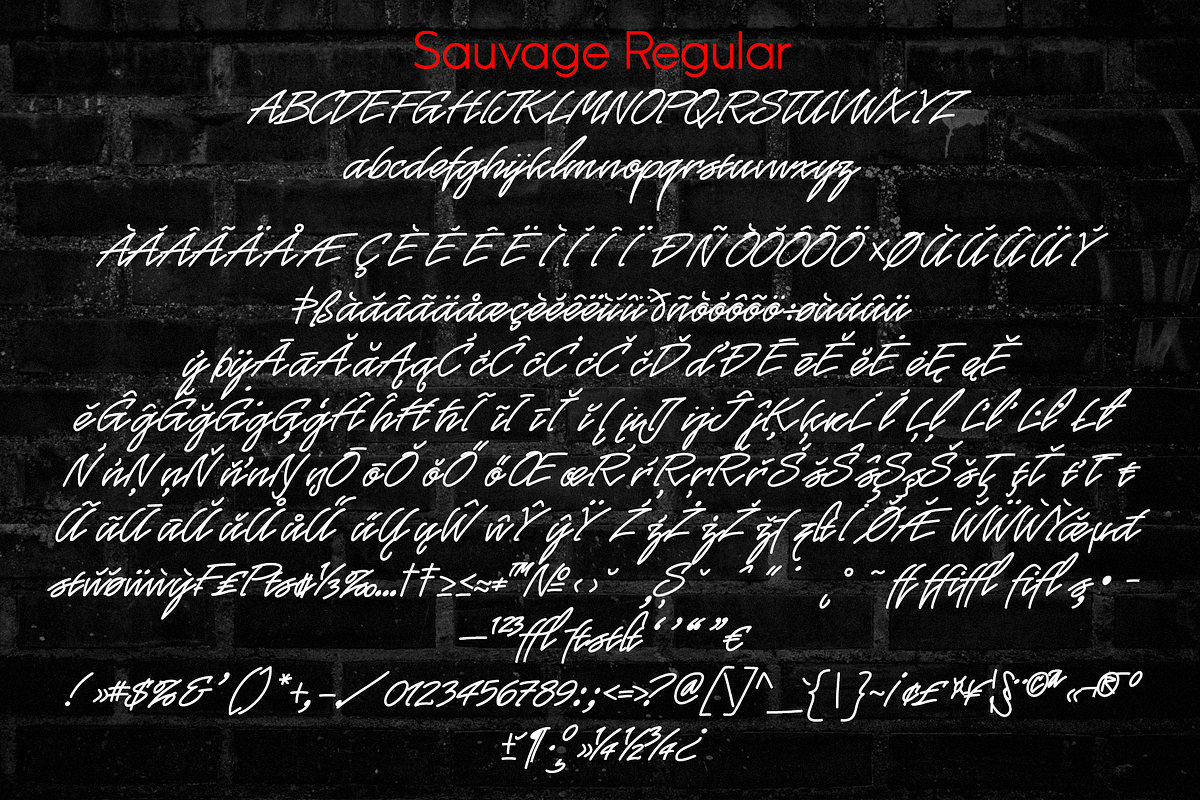 Sauvage Regular
ABCDEFGHIJKLMNOPQRSTUVWXYZ
abcdefghijklmnopqrstuvwxyz
ÀÁÂÃÄÅÆÇÈÉÊËÌÍÎÏÐÑÒÓÔÕÖ×ØÙÚÛÜÝ
Þßàáâãäåæçèéêëìíîïðñòóôõö÷øùúûü
ýþÿĀāĂăĄąĆćĈĉĊċČčĎďĐĒēĔĕĖėĘęĚ
ěĜĝĞğĠġĢģĤĥĦħĨĩĪīĬĭįĴĵĶķĸĹĺĻļĽľĿŀŁł
ŃńŅņŇňŉŊŋŌōŎŏŐőŒœŔŕŖŗŘřŚśŜŝŞşŠšŢţŤťŦŧ
ŨũŪūŬŭŮůŰűŲųŴŵŶŷŸŹźŻżŽž
™№
—¹²³ ‘ ’ “ ” €
0123456789:;<=>?@[\]^_{|}~¡¢£
¼½¾¿